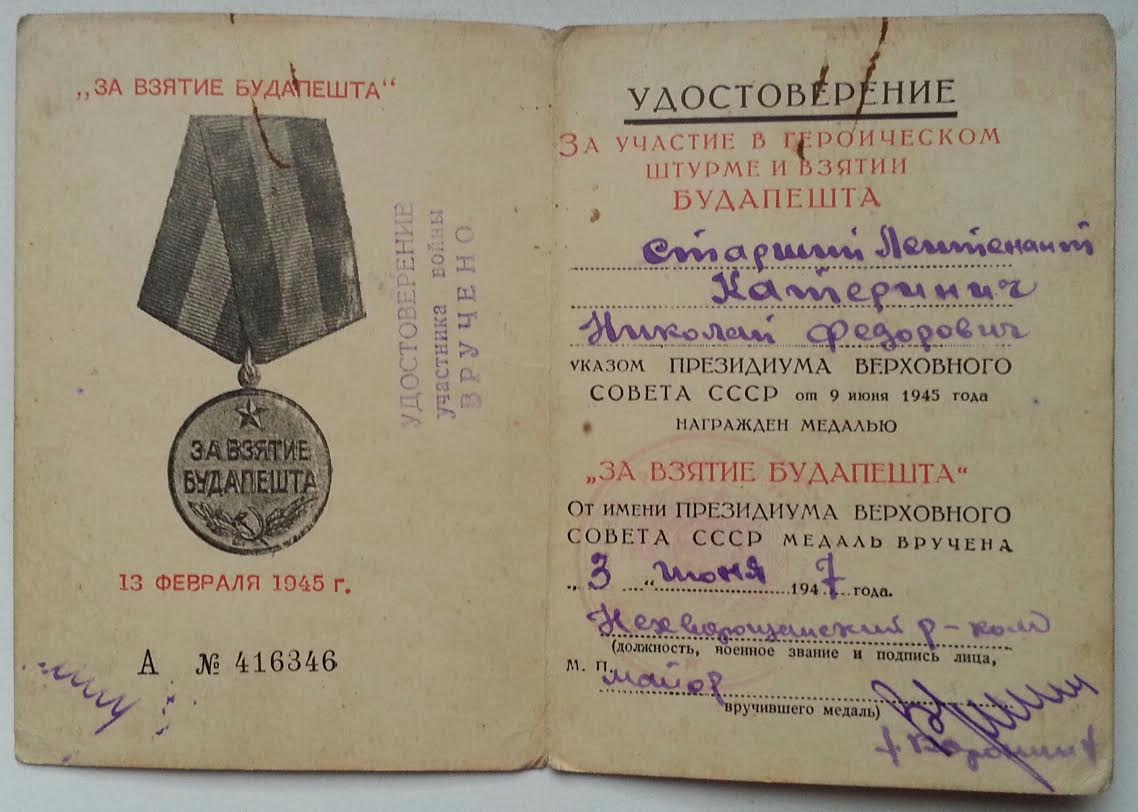 „ЗА ВЗЯТИЕ БУДАПЕШТА“
ЗА ВЗЯТИЕ
БУДАПЕШТА
13 ФЕВРАЛЯ 1945 г.
А № 416346
УДОСТОВЕРЕНИЕ
участника войны
ВРУЧЕНО
УДОСТОВЕРЕНИЕ
ЗА УЧАСТИЕ В ГЕРОИЧЕСКОМ
ШТУРМЕ И ВЗЯТИИ
БУДАПЕШТА
Старший Лейтенант
Катеринич
Николай Федорович
УКАЗОМ ПРЕЗИДИУМА ВЕРХОВНОГО
СОВЕТА СССР от 9 июня 1945 года
НАГРАЖДЕН МЕДАЛЬЮ
„ЗА ВЗЯТИЕ БУДАПЕШТА“
ОТ ИМЕНИ ПРЕЗИДИУМА ВЕРХОВНОГО
СОВЕТА СССР МЕДАЛЬ ВРУЧЕНА
„3“ июня 1947 года.
Нехворощанский р-ком
(должность, военное звание и подпись лица,
М. П.
майор
вручившего медаль)